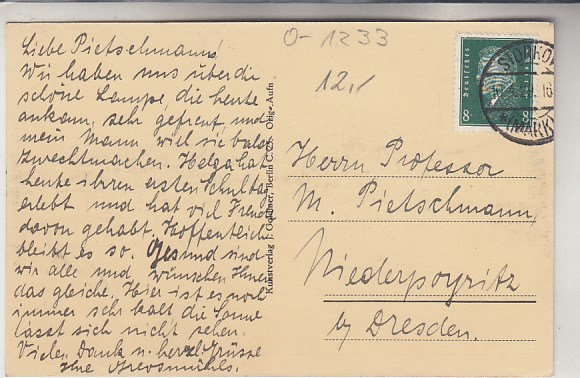 Liebe Pietschmanns!
Wir haben uns über die
schöne Lampe, die heute
ankam, sehr gefreut, und
mein Mann will sie bald
zurechtmachen. Helga hat
heute ihren ersten Schultag
erlebt und hat viel Freude
davon gehabt. Hoffentlich
bleibt es so. Gesund sind
wir alle und wünschen Ihnen
das gleiche. Hier ist es noch
immer sehr kalt die Sonne
lässt sich nicht sehen.
Vielen Dank u. herzl. Grüsse
Ihre
Kunstverlag J. Goldiner, Berlin C. 25. Orig.-Aufn
0-1233
12,-
Deutsches
8 8
STORKOW
(MARK)
Herrn Professor
M. Pietschmann,
Niederpoyritz
b/ Dresden.